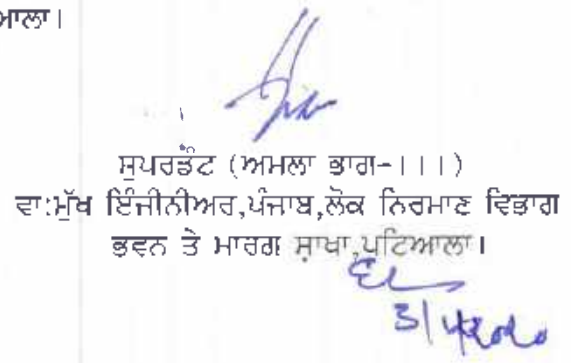 ਆਲਾ।
ਸੁਪਰਡੈਂਟ (ਅਮਲਾ ਭਾਗ-।।।)
ਵਾ:ਮੁੱਖ ਇੰਜੀਨੀਅਰ,ਪੰਜਾਬ,ਲੋਕ ਨਿਰਮਾਣ ਵਿਭਾਗ
ਭਵਨ ਤੇ ਮਾਰਗ ਸ਼ਾਖਾ,ਪਟਿਆਲਾ।